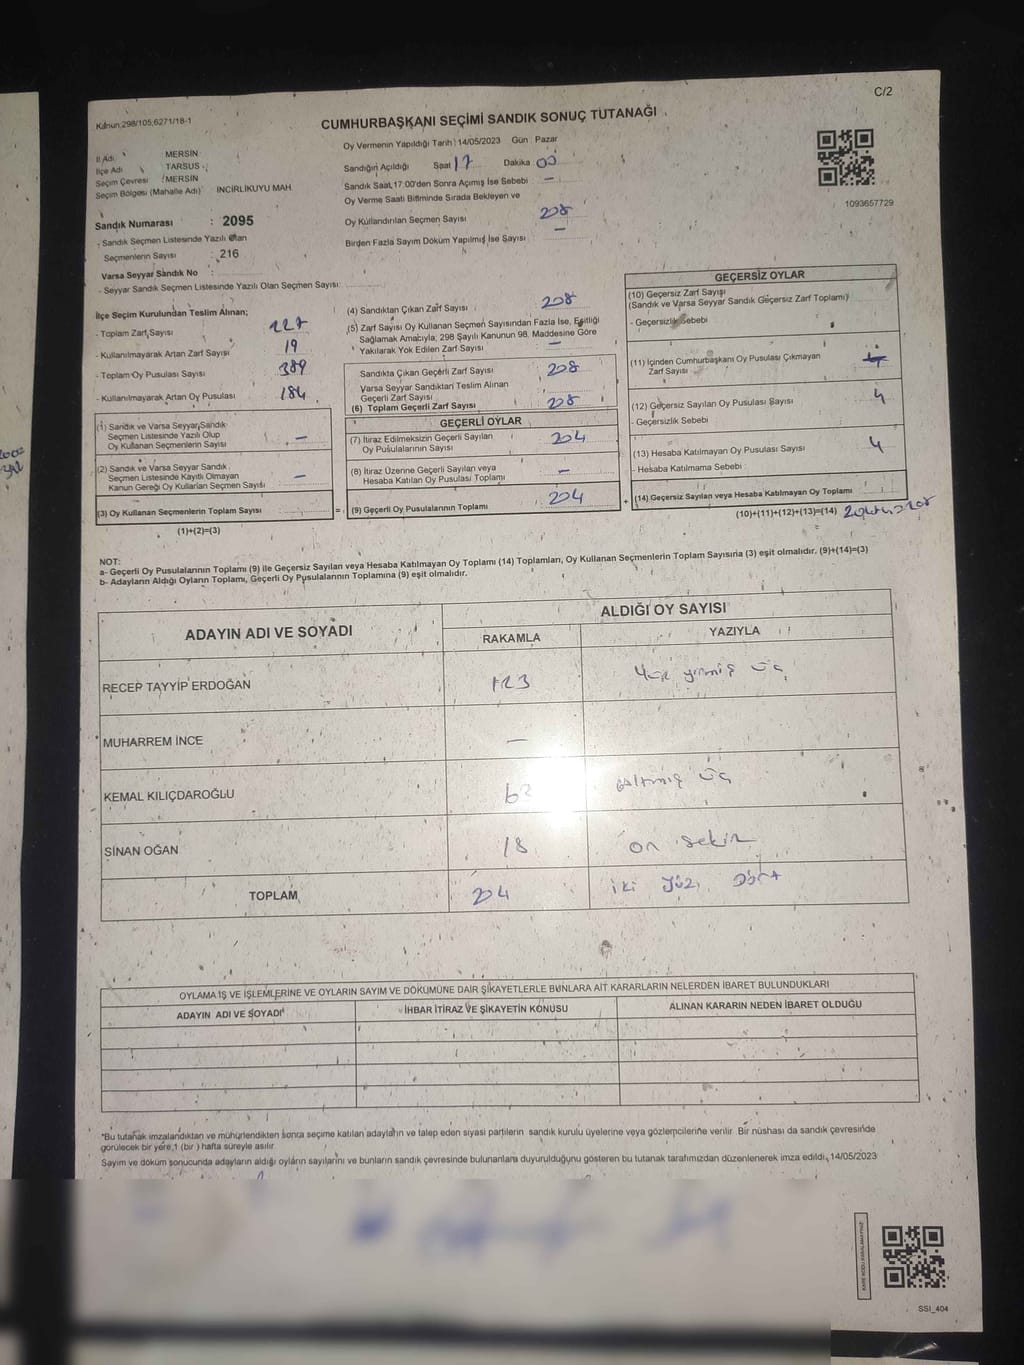 C/2
Kanun:298/105;6271/18-1
CUMHURBAŞKANI SEÇİMİ SANDIK SONUÇ TUTANAĞI
İl Adı : MERSİN
İlçe Adı : TARSUS
Seçim Çevresi : MERSİN
Seçim Bölgesi (Mahalle Adı) İNCİRLİKUYU MAH.
Sandık Numarası : 2095
- Sandık Seçmen Listesinde Yazılı Olan
Seçmenlerin Sayısı : 216
Varsa Seyyar Sandık No :
- Seyyar Sandık Seçmen Listesinde Yazılı Olan Seçmen Sayısı:
Oy Vermenin Yapıldığı Tarih : 14/05/2023 Gün : Pazar
Sandığın Açıldığı Saat 17 Dakika 00
Sandık Saat 17:00'den Sonra Açımış İse Sebebi –
Oy Verme Saati Bitiminde Sırada Bekleyen ve
Oy Kullandırılan Seçmen Sayısı 208
Birden Fazla Sayım Döküm Yapılmış İse Sayısı –
1093657729
İlçe Seçim Kurulundan Teslim Alınan;
- Toplam Zarf Sayısı 227
- Kullanılmayarak Artan Zarf Sayısı 19
- Toplam Oy Pusulası Sayısı 389
- Kullanılmayarak Artan Oy Pusulası 184
(1) Sandık ve Varsa Seyyar Sandık
Seçmen Listesinde Yazılı Olup
Oy Kullanan Seçmenlerin Sayısı –
(2) Sandık ve Varsa Seyyar Sandık
Seçmen Listesinde Kayıtlı Olmayan
Kanun Gereği Oy Kullanan Seçmen Sayısı –
(3) Oy Kullanan Seçmenlerin Toplam Sayısı =
(1)+(2)=(3)
(4) Sandıktan Çıkan Zarf Sayısı 208
(5) Zarf Sayısı Oy Kullanan Seçmen Sayısından Fazla İse, Eşitliği
Sağlamak Amacıyla, 298 Sayılı Kanunun 98. Maddesine Göre
Yakılarak Yok Edilen Zarf Sayısı –
Sandıkta Çıkan Geçerli Zarf Sayısı 208
Varsa Seyyar Sandıktan Teslim Alınan
Geçerli Zarf Sayısı
(6) Toplam Geçerli Zarf Sayısı 208
GEÇERLİ OYLAR
(7) İtiraz Edilmeksizin Geçerli Sayılan
Oy Pusulalarının Sayısı 204
(8) İtiraz Üzerine Geçerli Sayılan veya
Hesaba Katılan Oy Pusulası Toplamı –
(9) Geçerli Oy Pusulalarının Toplamı 204 +
GEÇERSİZ OYLAR
(10) Geçersiz Zarf Sayışı
(Sandık ve Varsa Seyyar Sandık Geçersiz Zarf Toplamı)
- Geçersizlik Sebebi
(11) İçinden Cumhurbaşkanı Oy Pusulası Çıkmayan
Zarf Sayısı
(12) Geçersiz Sayılan Oy Pusulası Sayısı 4
- Geçersizlik Sebebi
(13) Hesaba Katılmayan Oy Pusulası Sayısı 4
- Hesaba Katılmama Sebebi
(14) Geçersiz Sayılan veya Hesaba Katılmayan Oy Toplamı
(10)+(11)+(12)+(13)=(14) 204+4=208
NOT:
a- Geçerli Oy Pusulalarının Toplamı (9) ile Geçersiz Sayılan veya Hesaba Katılmayan Oy Toplamı (14) Toplamları, Oy Kullanan Seçmenlerin Toplam Sayısına (3) eşit olmalıdır. (9)+(14)=(3)
b- Adayların Aldığı Oyların Toplamı, Geçerli Oy Pusulalarının Toplamına (9) eşit olmalıdır.
ADAYIN ADI VE SOYADI
ALDIĞI OY SAYISI
RAKAMLA YAZIYLA
RECEP TAYYİP ERDOĞAN 123 Yüz yirmiş üç
MUHARREM İNCE –
KEMAL KILIÇDAROĞLU 63 altmış üç
SİNAN OĞAN 18 on sekiz
TOPLAM 204 iki yüz Dört
OYLAMA İŞ VE İŞLEMLERİNE VE OYLARIN SAYIM VE DÖKÜMÜNE DAİR ŞİKAYETLERLE BUNLARA AİT KARARLARIN NELERDEN İBARET BULUNDUKLARI
ADAYIN ADI VE SOYADI İHBAR İTİRAZ VE ŞİKAYETİN KONUSU ALINAN KARARIN NEDEN İBARET OLDUĞU
*Bu tutanak imzalandıktan ve mühürlendikten sonra seçime katılan adayların ve talep eden siyasi partilerin sandık kurulu üyelerine veya gözlemcilerine verilir. Bir nüshası da sandık çevresinde
görülecek bir yere 1 (bir ) hafta süreyle asılır.
Sayım ve döküm sonucunda adayların aldığı oyların sayılarını ve bunların sandık çevresinde bulunanlara duyurulduğunu gösteren bu tutanak tarafımızdan düzenlenerek imza edildi. 14/05/2023
SSI_404